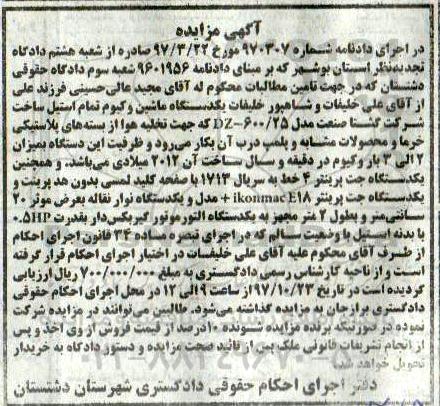 آگهی مزایده
در اجرای دادنامه شماره ۹۷۰۳۰۷ مورخ ۹۷/۳/۲۲ صادره از شعبه هشتم دادگاه
تجدیدنظر استان بوشهر که بر مبنای دادنامه ۹۶۰۱۹۵۶ شعبه سوم دادگاه حقوقی
دشتستان که در جهت تامین مطالبات محکوم له آقای مجید عالی‌حسینی فرزند علی
از آقای علی خلیفات و شاهپور خلیفات یکدستگاه ماشین وکیوم تمام استیل ساخت
شرکت گشتا صنعت مدل DZ-۶۰۰/۲۵ که جهت تخلیه هوا از بسته‌های پلاستیکی
خرما و محصولات مشابه و پلمپ درب آن بکار می‌رود و ظرفیت این دستگاه بمیزان
۲ الی ۳ بار وکیوم در دقیقه و سال ساخت آن ۲۰۱۲ میلادی می‌باشد. و همچنین
یکدستگاه جت پرینتر ۴ خط به سریال ۱۷۱۳ با صفحه کلید لمسی بدون هد پرینت و
یکدستگاه جت پرینتر ikonmac E۱۸ + مدل و یکدستگاه نوار نقاله بعرض موتر ۲۰
سانتی‌متر و بطول ۲ متر مجهز به یکدستگاه الترموتور گیربکس‌دار بقدرت ۰.۵HP
با بدنه استیل با وضعیت سالم که در اجرای تبصره ماده ۳۴ قانون اجرای احکام
از طرف آقای محکوم علیه آقای علی خلیفات در اختیار اجرای احکام قرار گرفته
است و از ناحیه کارشناس رسمی دادگستری به مبلغ ۷۰۰/۰۰۰/۰۰۰ ریال ارزیابی
گردیده است در تاریخ ۹۷/۱۰/۲۳ از ساعت ۹ الی ۱۲ در محل اجرای احکام حقوقی
دادگستری برازجان به مزایده گذاشته می‌شود. طالبین می‌توانند در مزایده شرکت
نموده در صورتیکه برنده مزایده شوند ۱۰درصد از قیمت فروش از وی اخذ و پس
از انجام تشریفات قانونی ملک پس از تائید صحت مزایده و دستور دادگاه به خریدار
تحویل خواهد شد.
دفتر اجرای احکام حقوقی دادگستری شهرستان دشتستان